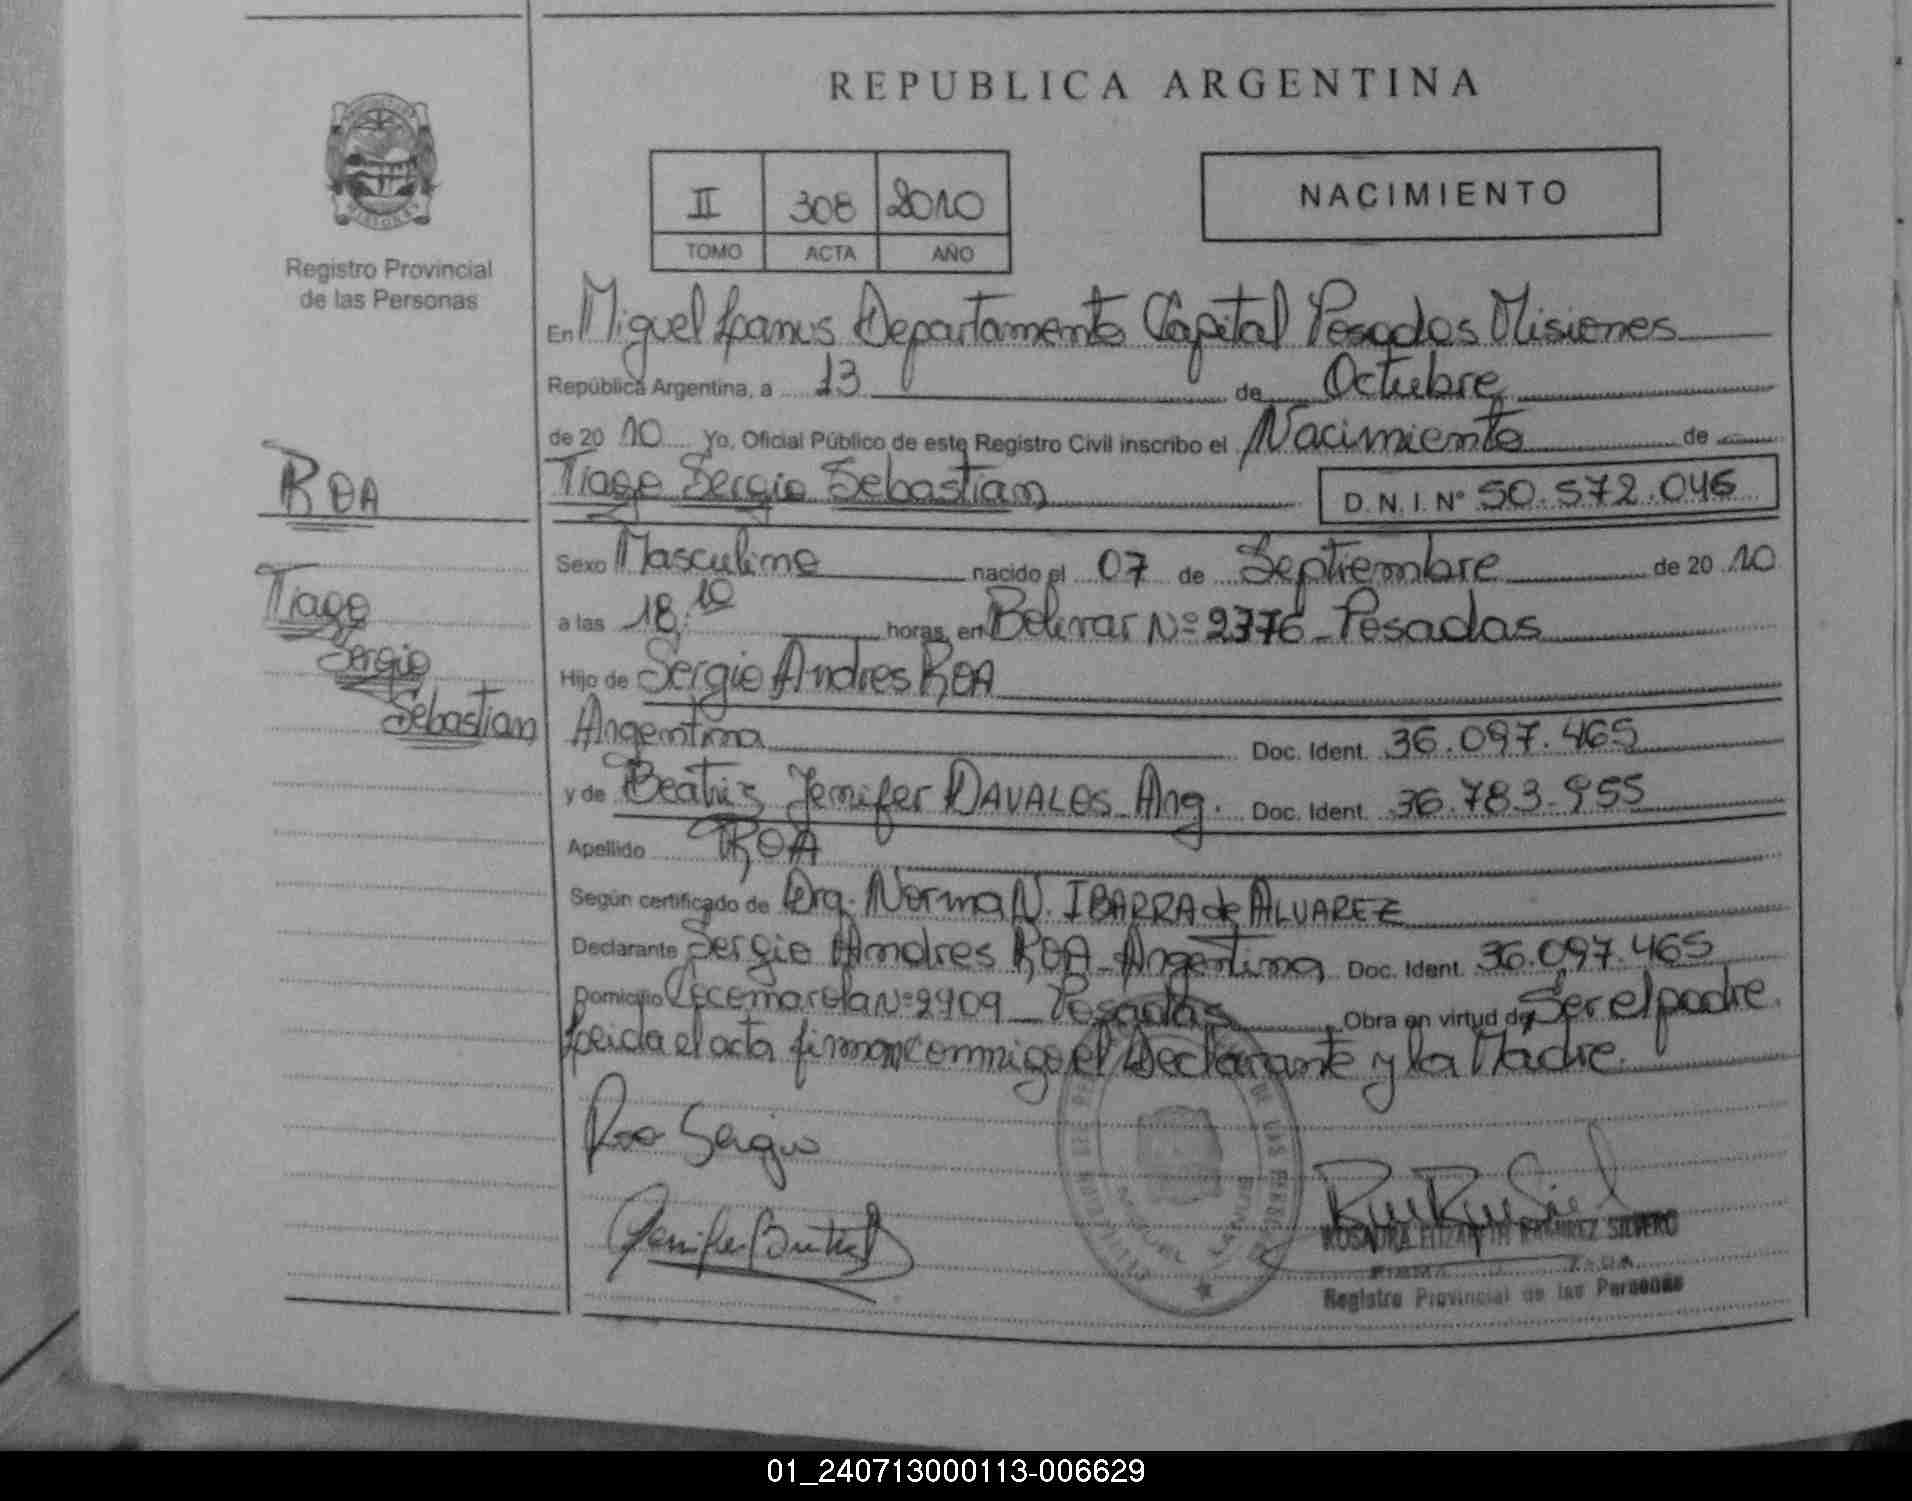 REPUBLICA ARGENTINA
II 308 2010
TOMO ACTA AÑO
NACIMIENTO
Registro Provincial
de las Personas
ROA
Tiago
Sergio
Sebastian
En Miguel Lanus Departamento Capital Posadas Misiones
República Argentina, a 13 de Octubre
de 2010 Yo, Oficial Público de este Registro Civil inscribo el Nacimiento de
Tiago Sergio Sebastian D.N.I. N° 50.572.046
Sexo Masculino nacido el 07 de Septiembre de 2010
a las 18:10 horas, en Bolivar Nº 2376 - Posadas
Hijo de Sergio Andres ROA
Argentina Doc. Ident. 36.097.465
y de Beatriz Jenifer DAVALOS - Arg. Doc. Ident. 36.783.955
Apellido ROA
Según certificado de Norma N. IBARRA de ALVAREZ
Declarante Sergio Andres ROA - Argentina Doc. Ident. 36.097.465
Domicilio Cocomarola Nº 2909 - Posadas Obra en virtud de Ser el padre.
Leida el acta firman conmigo el Declarante y la Madre.
Roa Sergio
Jenifer
ROSAURA ELIZABETH RAMIREZ SILVERO
Registro Provincial de las Personas
01_240713000113-006629